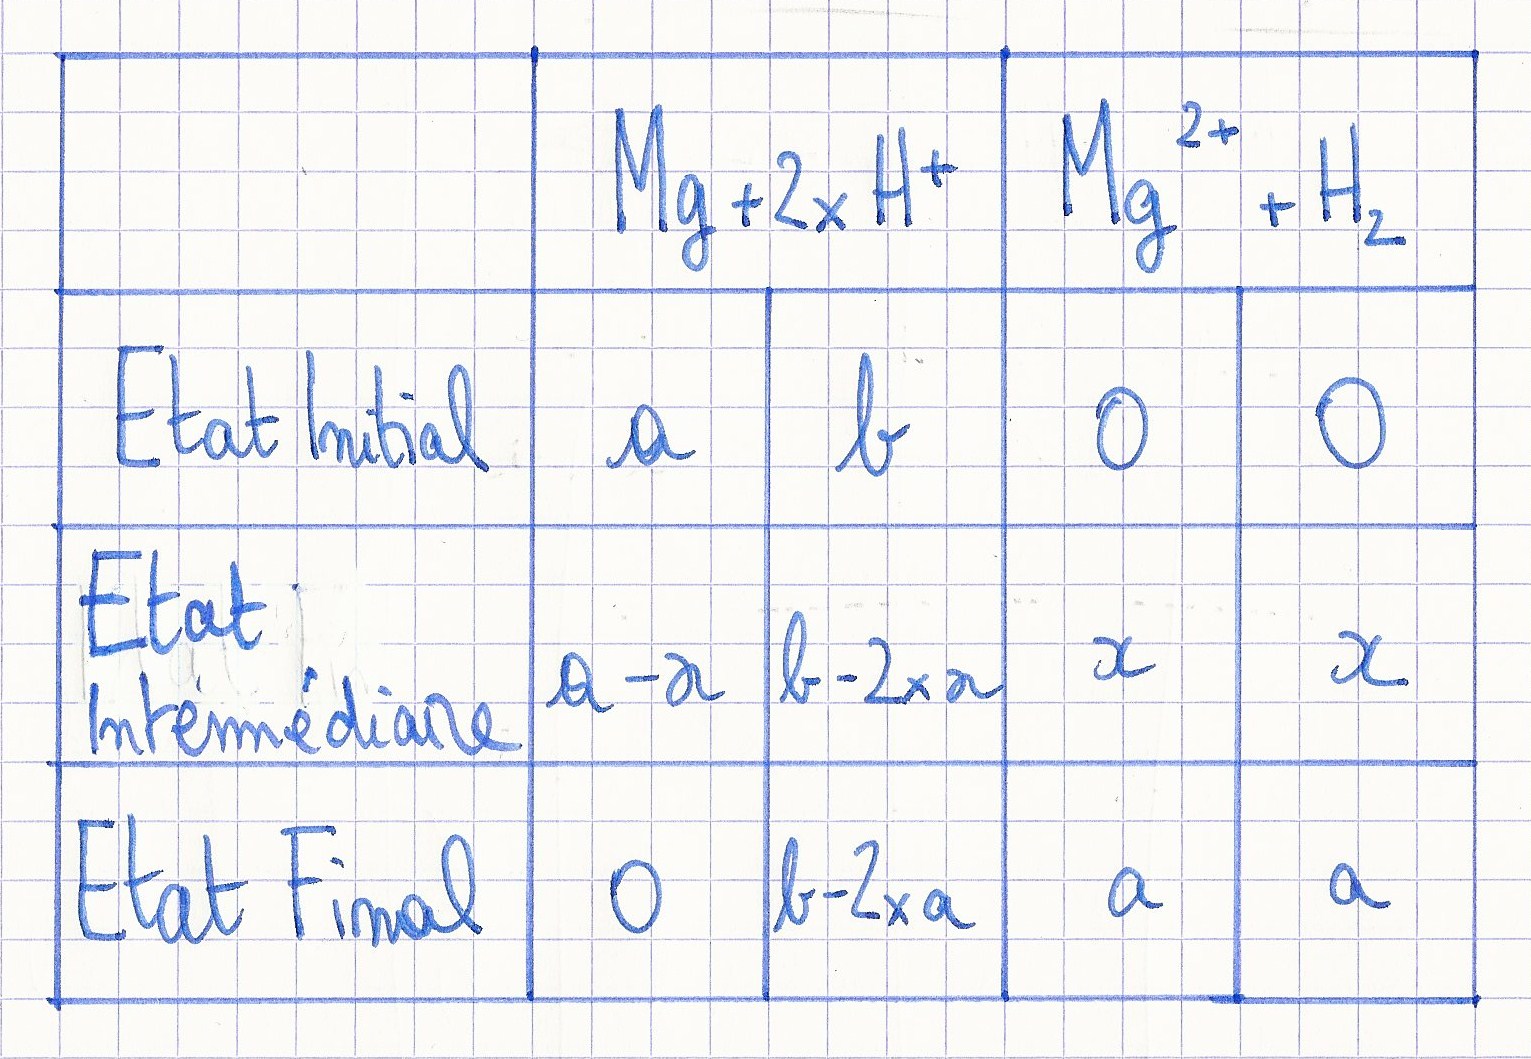 Mg + 2 x H+ Mg 2+ + H2
Etat Initial a b 0 0
Etat
Intérmédiaire a - x b - 2 x x x x
Etat Final 0 b - 2 x a a a